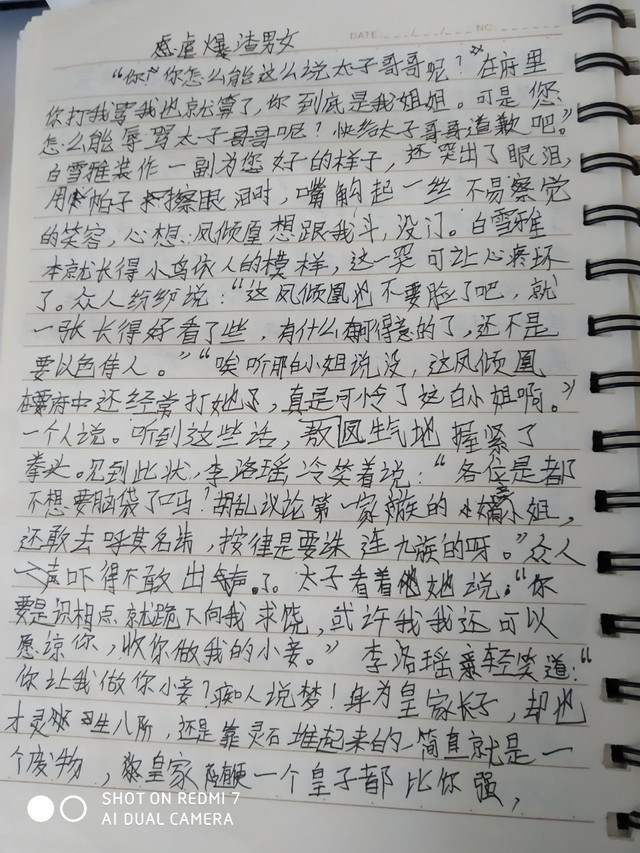 虐爆渣男女
DATE NO:
“你,你怎么能这么说太子哥哥呢?”在府里
你打我骂我也就算了,你到底是我姐姐。可是您
怎么能辱骂太子哥哥呢?快给太子哥哥道歉吧。”
白雪雅装作一副为您好的样子,还突出了眼泪,
用帕子擦眼泪时,嘴角勾起一丝不易察觉
的笑容,心想:凤倾凰想跟我斗,没门。白雪雅
本就长得小鸟依人的模样,这一哭可让人心疼坏
了。众人纷纷说:“这凤倾凰也不要脸了吧,就
一张长得好看了些,有什么得意的了,还不是
要以色侍人。”“唉听那白小姐说没,这凤倾凰
在府中还经常打她了,真是可怜了这白小姐啊。”
一个人说。听到这些话,敖凤生气地握紧了
拳头。见到此状,李洛瑶冷笑着说:“各位是都
不想要脑袋了吗?胡乱议论第一家族的嫡小姐,
还敢去呼其名讳,按律是要诛连九族的呀。”众人
一声吓得不敢出声了。太子看着她说:“你
要是识相点就跪下向我求饶,或许我我还可以
愿谅你,收你做我的小妾。”李洛瑶轻笑道:“
你让我做你小妾?痴人说梦!身为皇家长子,却也
才灵生八阶,还是靠灵石堆起来的,简直就是一
个废物,皇家随便一个皇子都比你强,
SHOT ON REDMI 7
AI DUAL CAMERA